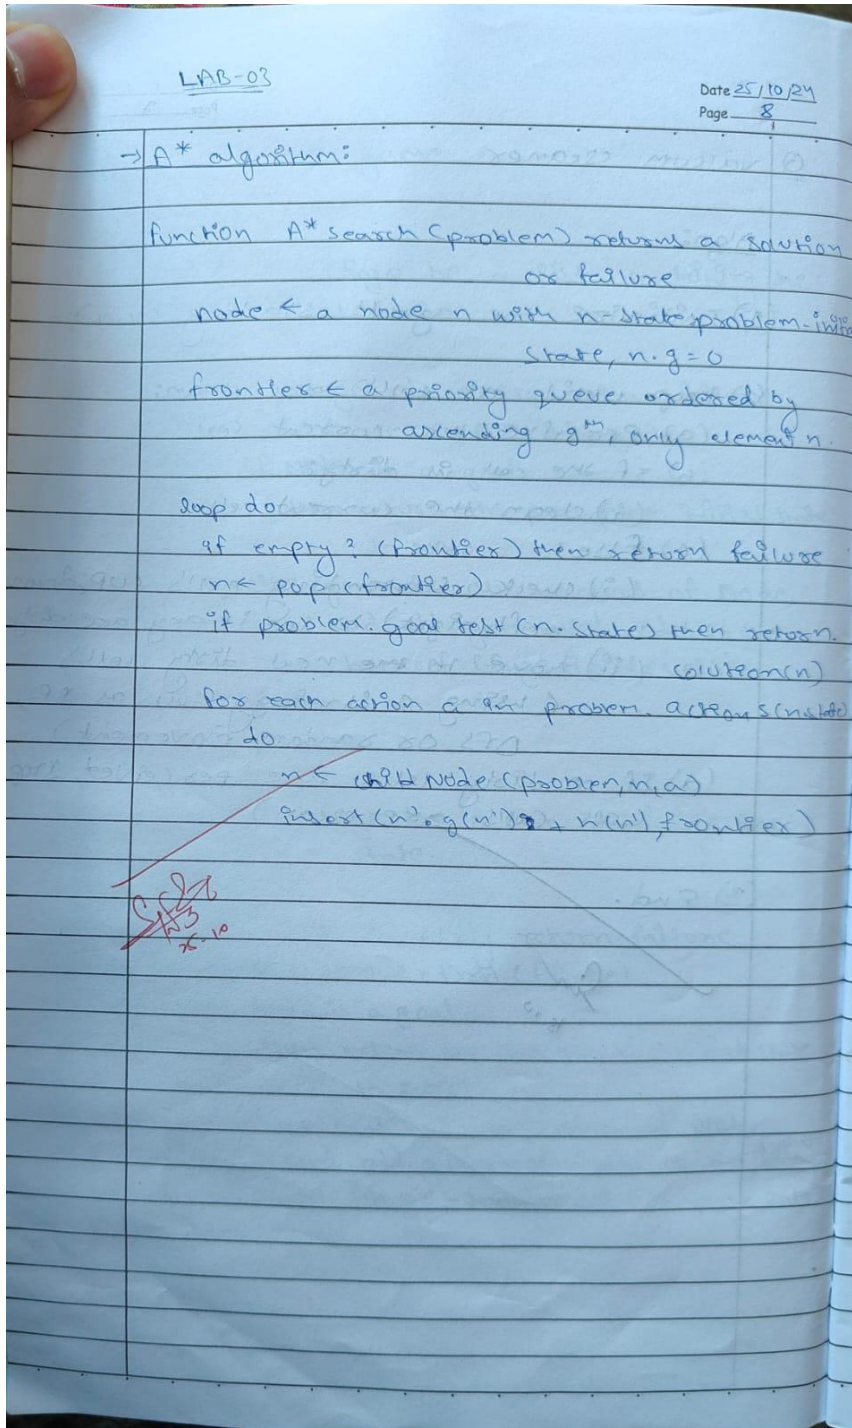 LAB-03
Date 25/10/24
Page 8
→ A* algorithm:
function A* search (problem) returns a solution
or failure
node ← a node n with n-state problem-initial
state, n.g=0
frontier ← a priority queue ordered by
ascending only element n.
loop do
if empty? (frontier) then return failure
n ← pop (frontier)
if problem. goal test (n. state) then return.
solution(n)
for each action a in problem. actions(n.state)
do
n ← child Node (problem, n, a)
insert (n', g(n') + h(n'), frontier)
25-10